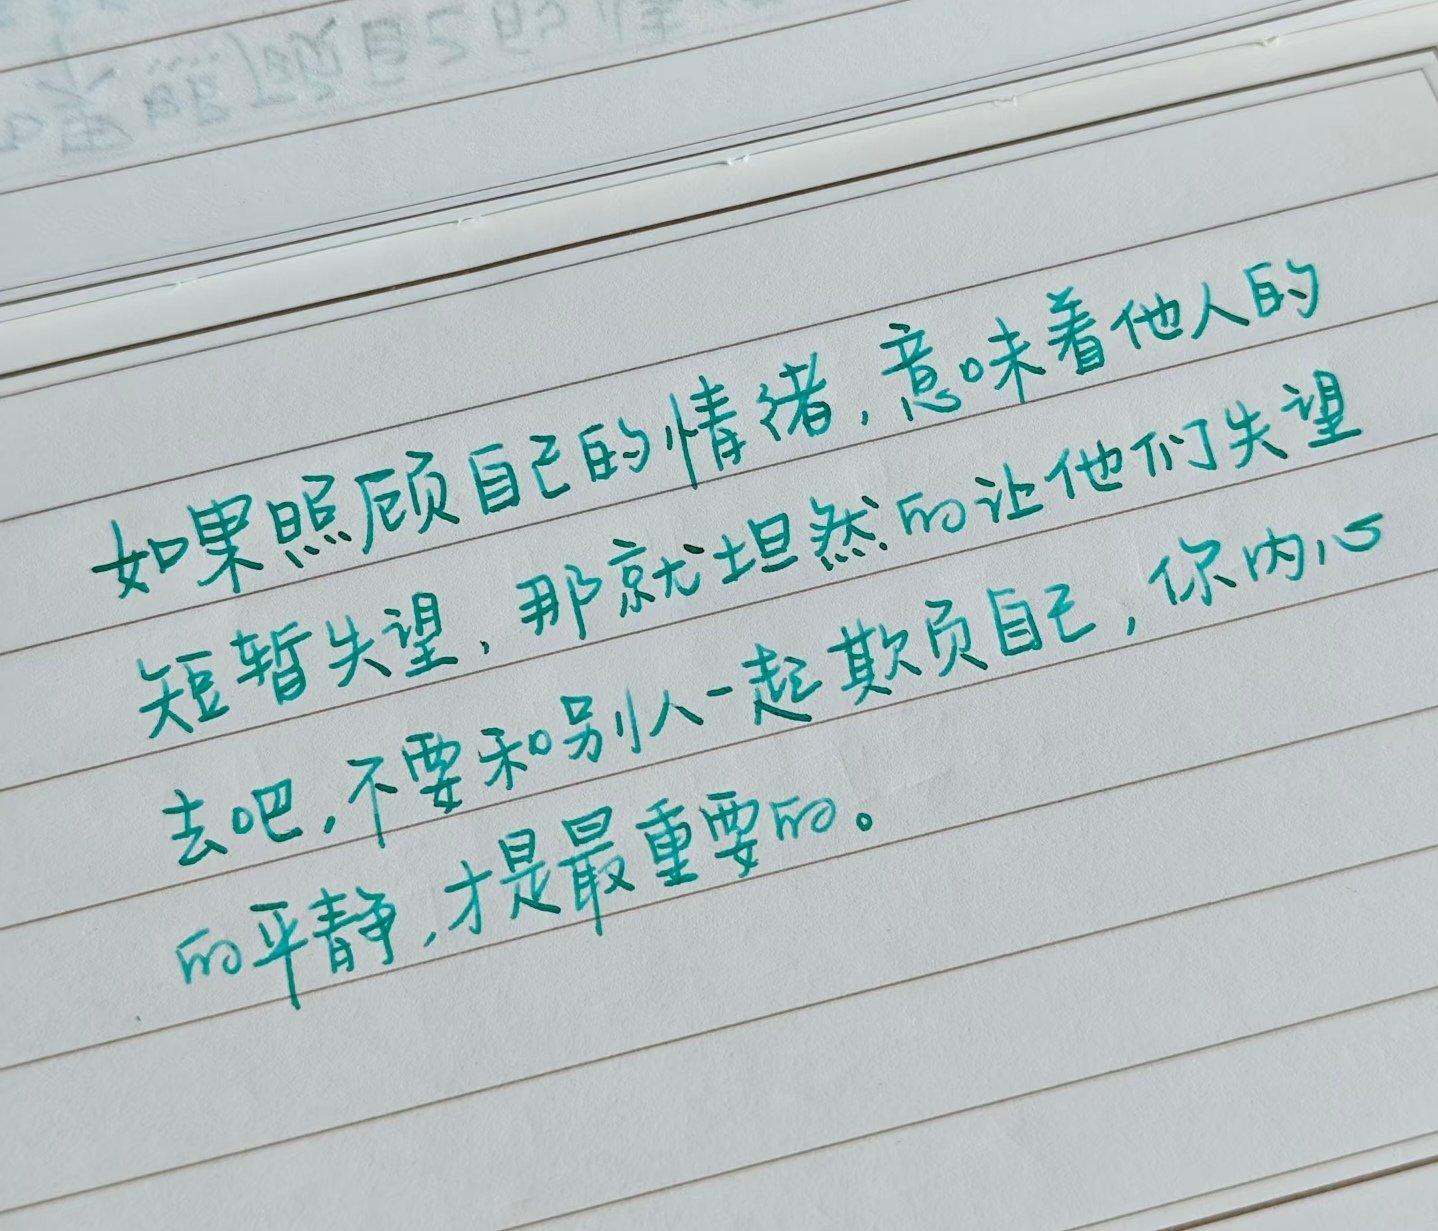 如果照顾自己的情绪，意味着他人的
短暂失望，那就坦然的让他们失望
去吧，不要和别人一起欺负自己，你内心
的平静，才是最重要的。